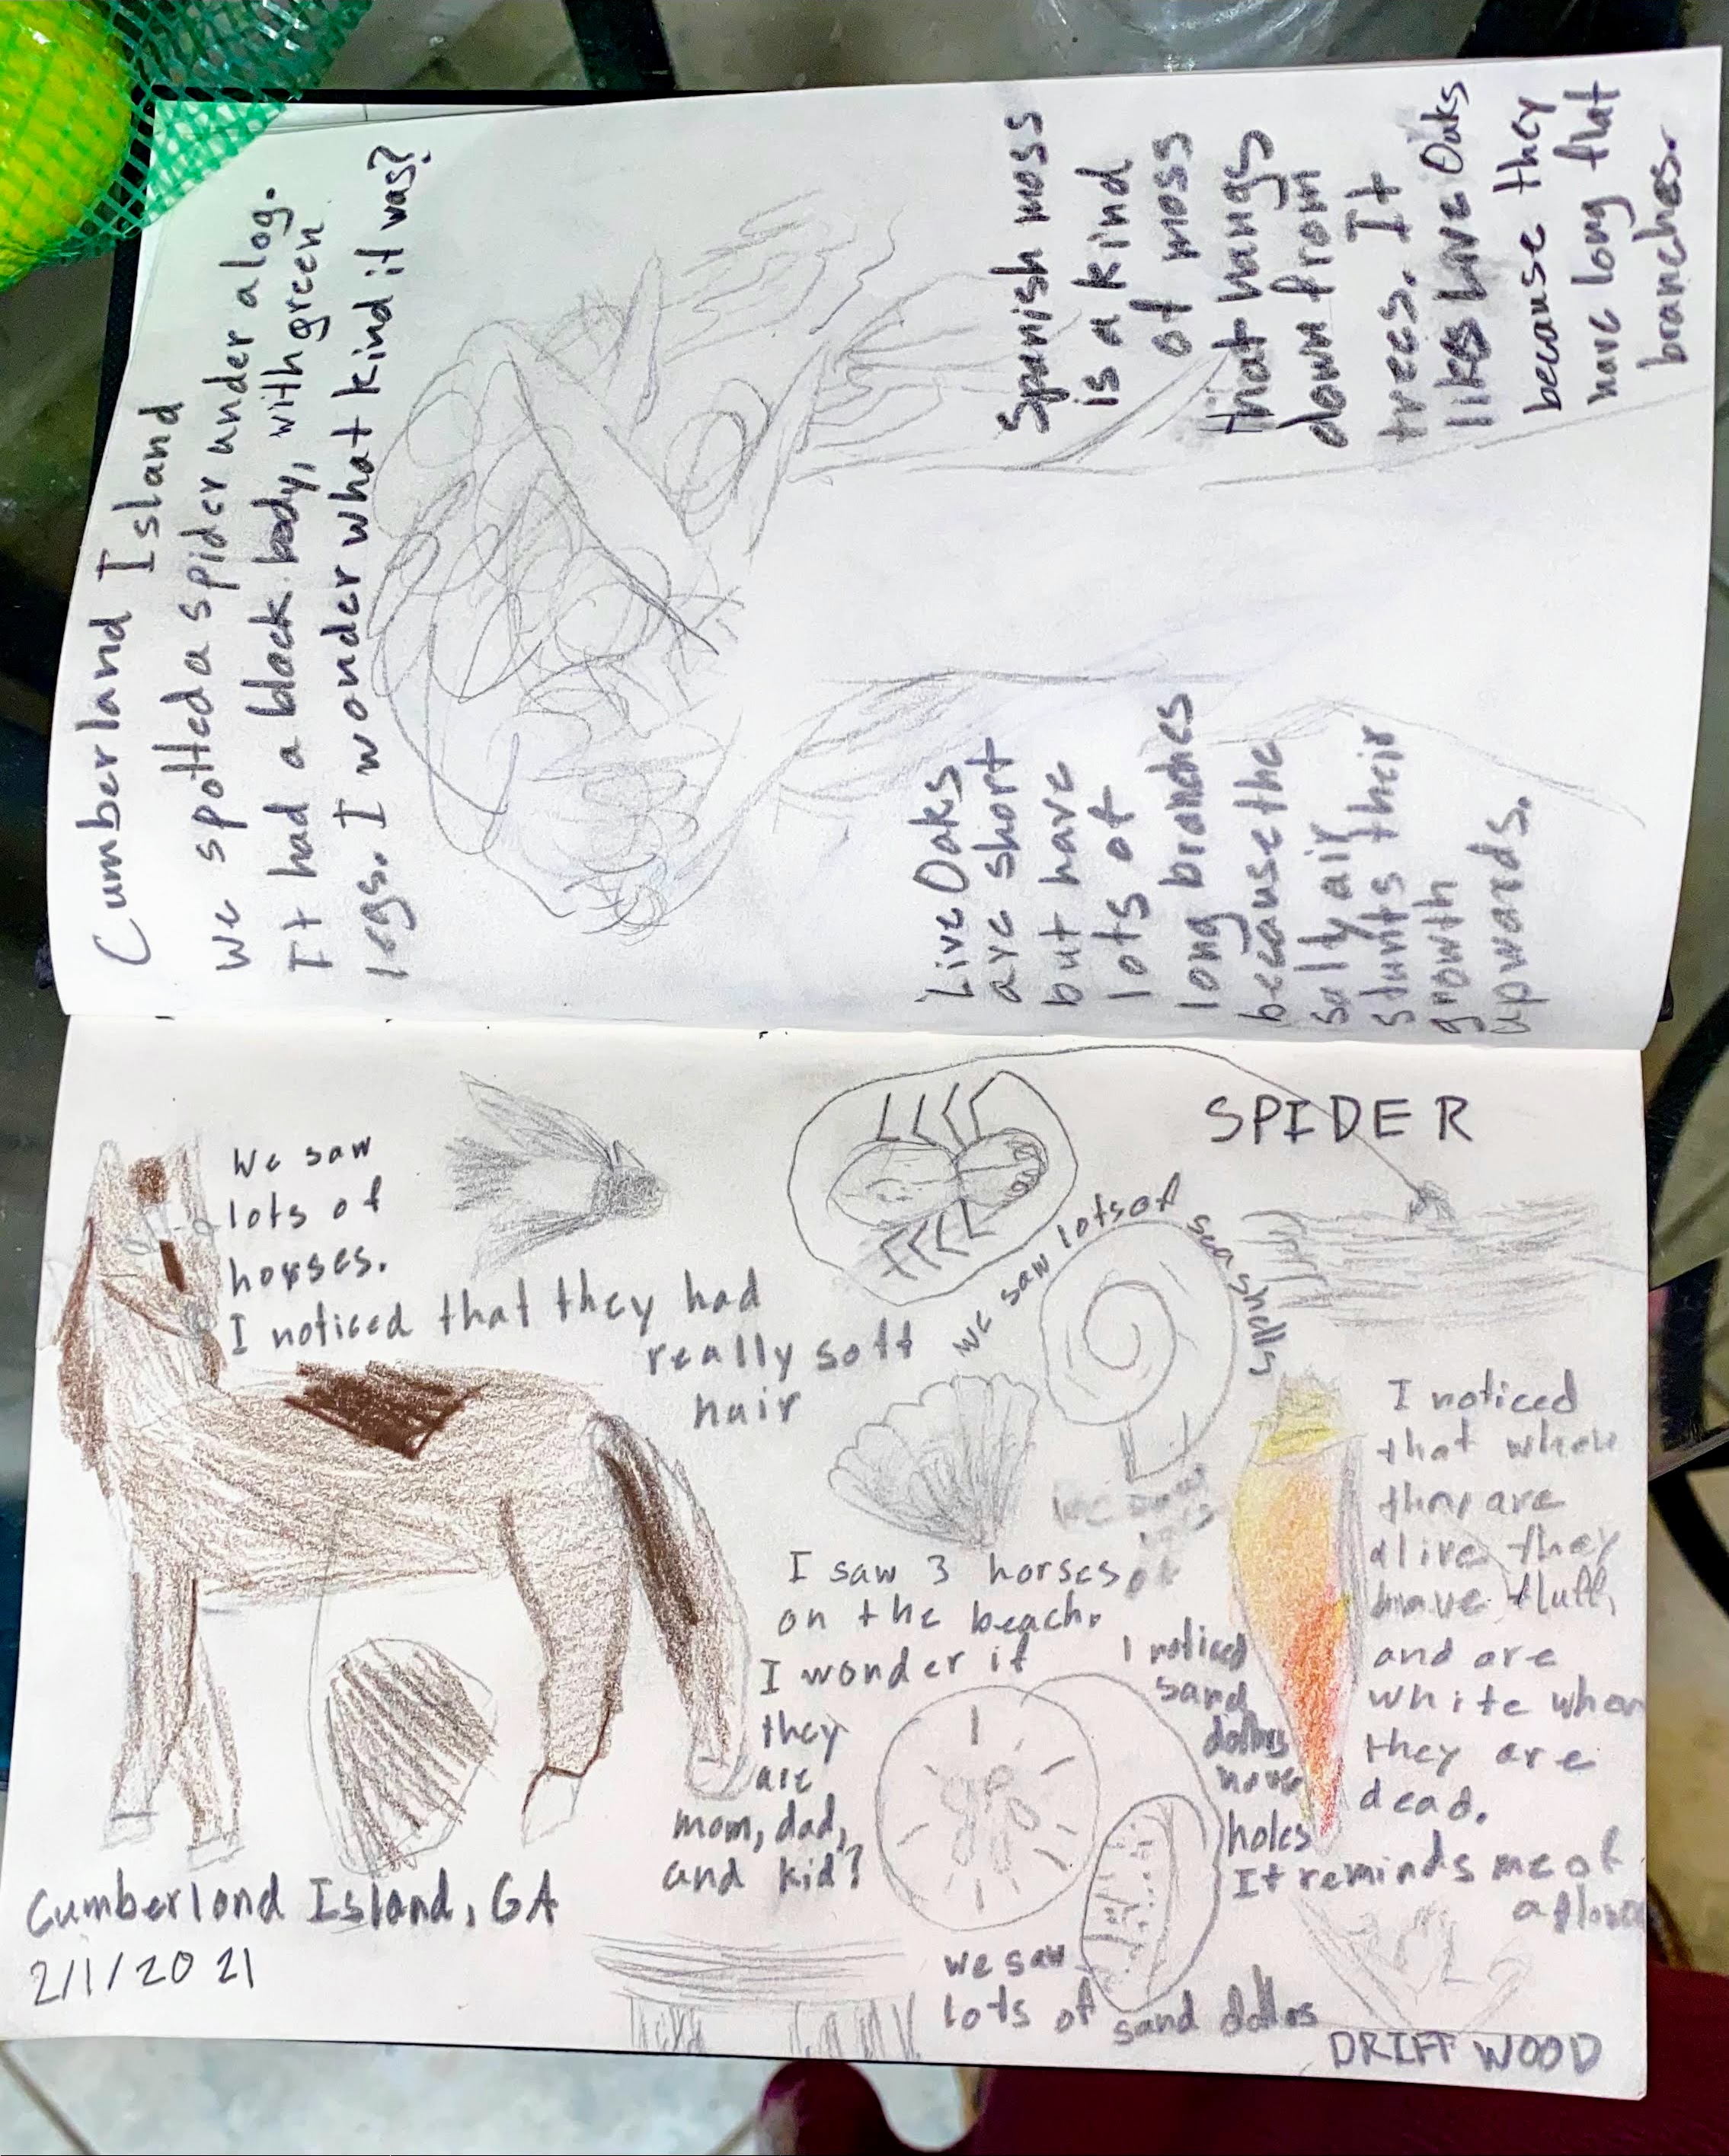 Cumberland Island
We spotted a spider under a log.
It had a black body, with green
legs. I wonder what kind it was?
Live Oaks
are short
but have
lots of
long branches
because the
salty air
stunts their
growth
upwards.
Spanish moss
is a kind
of moss
that hangs
down from
trees. It
likes Live Oaks
because they
have long flat
branches.
We saw
lots of
horses.
I noticed that they had
really soft
hair
SPIDER
We saw lots of sea shells
I saw 3 horses
on the beach.
I wonder if
they
are
mom, dad,
and kid?
I noticed
sand
dollars
have
holes
I noticed
that when
they are
alive they
have fluff,
and are
white when
they are
dead.
It reminds me of
a flower
we saw
lots of sand dollars
Cumberlond Island, GA
2/1/2021
DRIFTWOOD